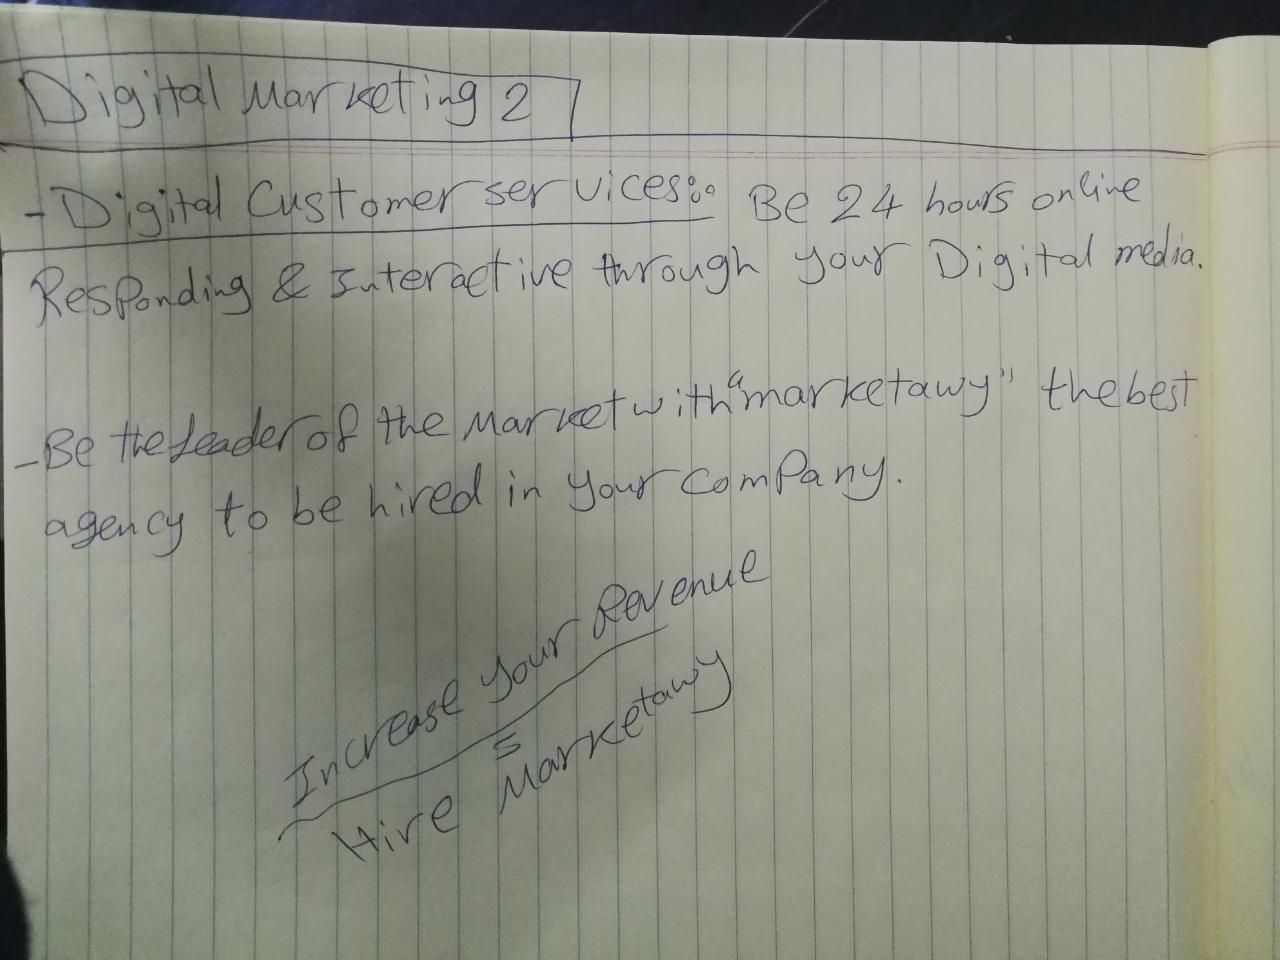 Digital Marketing 2
- Digital Customer services:. Be 24 hours online
Responding & Interactive through your Digital media.
- Be the Leader of the Market with "marketawy" the best
agency to be hired in your company.
Increase your Revenue
Hire Marketawy